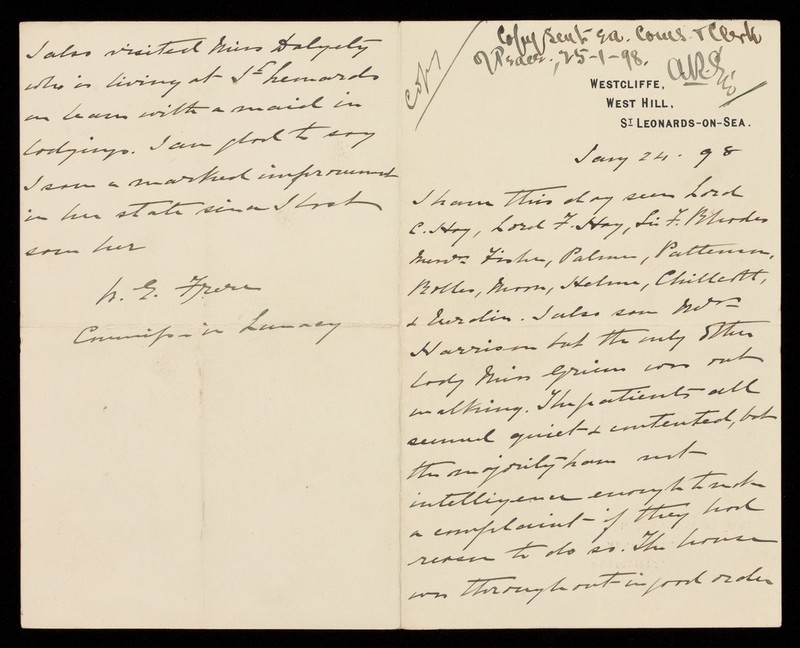 Copy
Copy sent ea. Coms. & Clerk
of Peace, 25-1-98.
WESTCLIFFE,
WEST HILL,
ST LEONARDS-ON-SEA.
Jany 24. 98
I have this day seen Lord
C. Hay, Lord F. Hay, Sir F. Rhodes
Messrs Fisher, Palmer, Patteson,
Bolles, Moon, Helme, Chillcott,
& . I also saw Mrs
Harrison but the only other
lady Miss was out
walking. The patients all
seemed quiet & contented, but
the majority have not
intelligence enough to make
a complaint if they had
reason to do so. The house
was throughout in good order
I also visited Miss Dalyety
who is living at St Leonards
on leave with a maid in
lodgings. I am glad to say
I saw a marked improvement
in her state since I last
saw her
W. E. Frere
Commissr in Lunacy